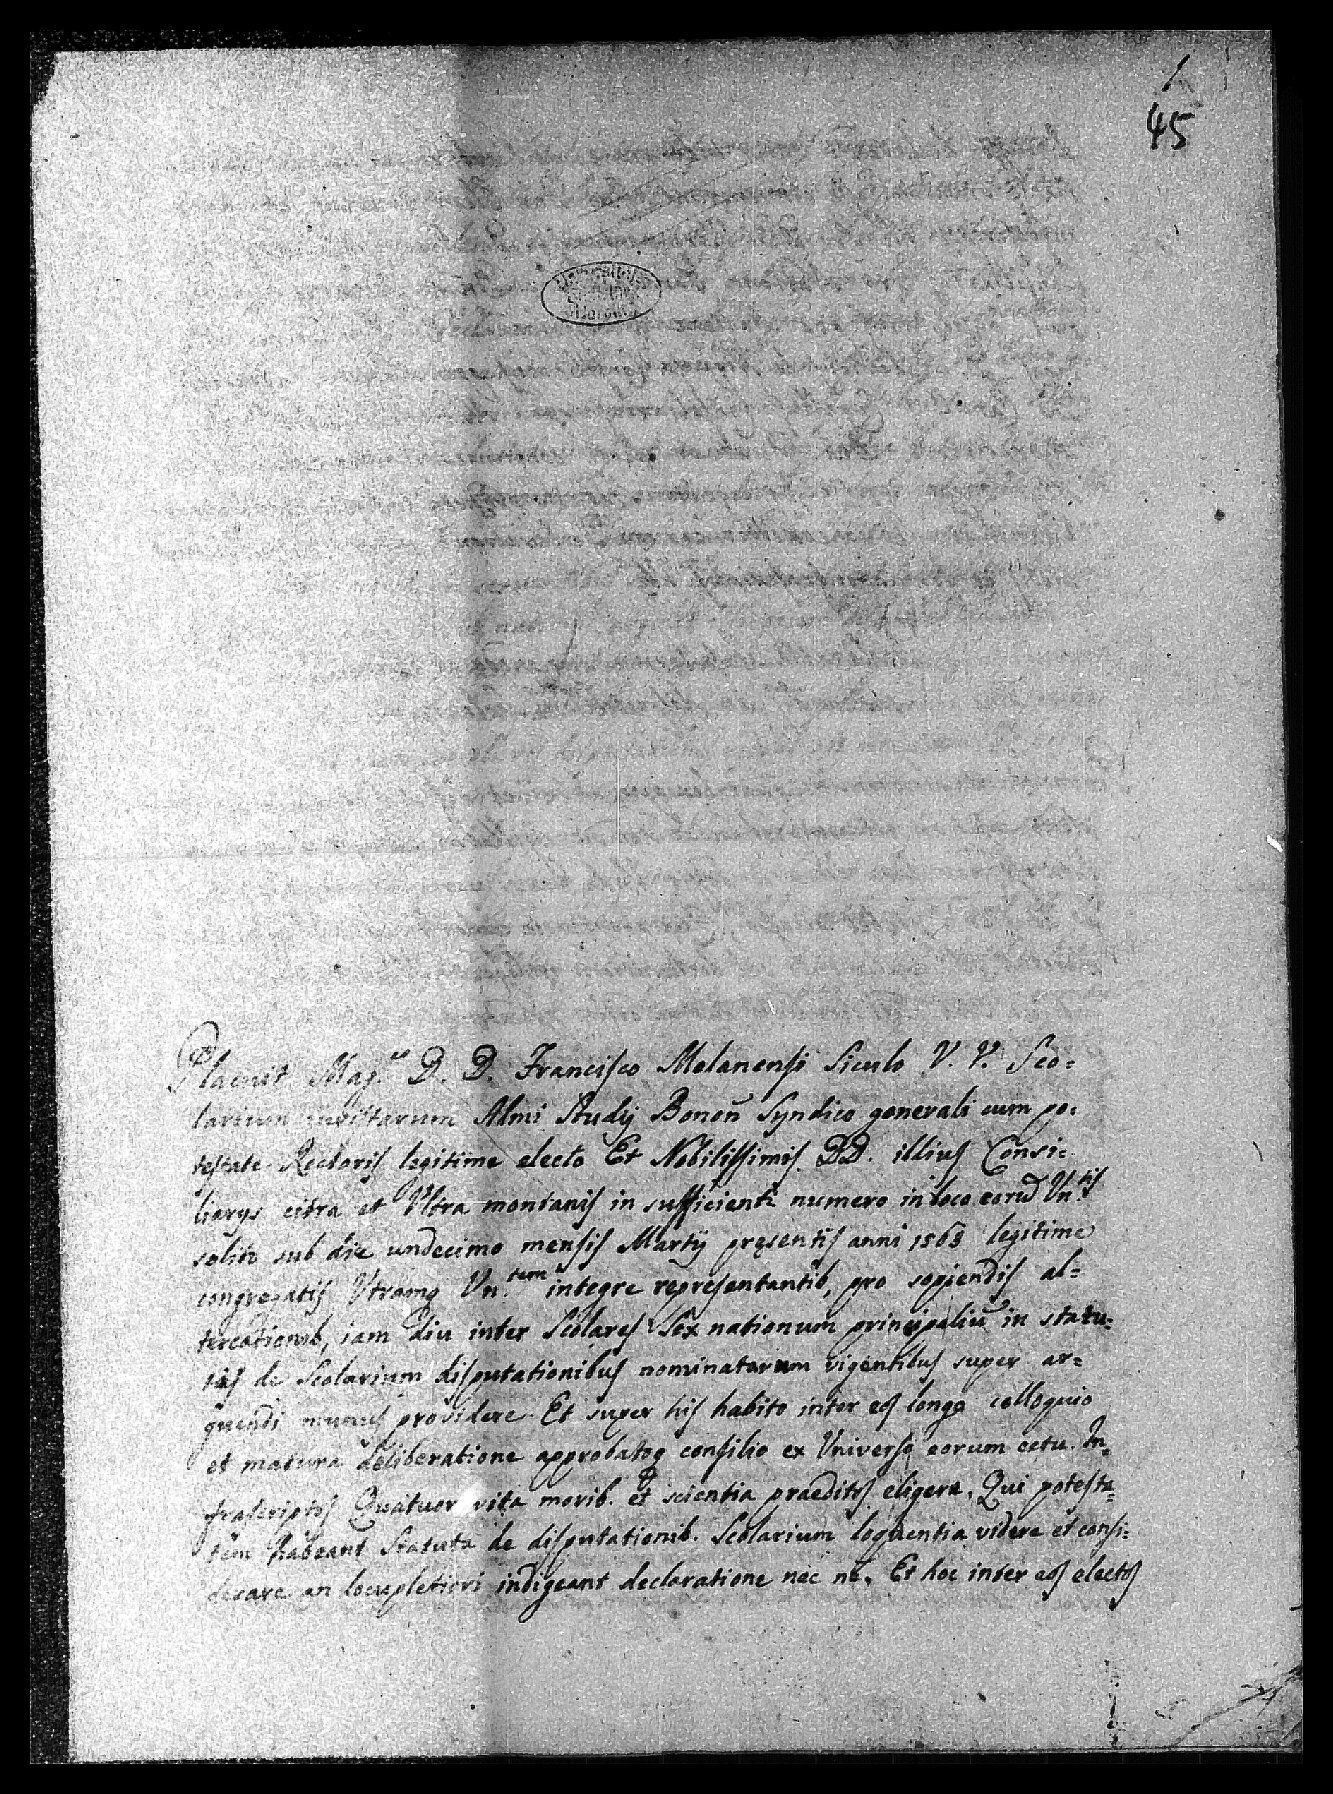 1
45
Placuit Mag.co D. D. Francisco Molanensi Siculo V. V. Sco=
larium iuristarum Almi Studij Bonoñ Syndico generali cum po=
testate Rectoris legitime electo Et Nobilissimis DD. illius Consi=
liarys citra et Ultra montanis in sufficienti numero in loco eorũ Un.tis
solito sub die undecimo mensis Martij pręsentis anni 1568 legitime
congregatis Utramq Un.tem integre representantib, pro sopiendis al=
tercationib, iam diu inter Scolares Sex nationum principaliũ in statu=
tis de Scolarium disputationibus nominatarum vigentibus super ar=
guendi munus providere. Et super his habito inter eos longo colloquio
et matura deliberatione approbatoq consilio ex Universo eorum cetu. In=
frascriptos Quatuor vita morib. et scientia praeditos eligere. Qui potesta=
tem habeant Statuta de disputationib. Scolarium loquentia videre et consi=
derare an locupletiori indigeant declaratione nec ne. Et hoc inter eos electos